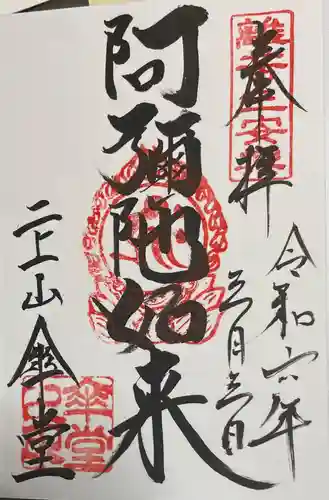 奉拝
令和六年
三月三日
阿彌陀如来
二上山傘堂